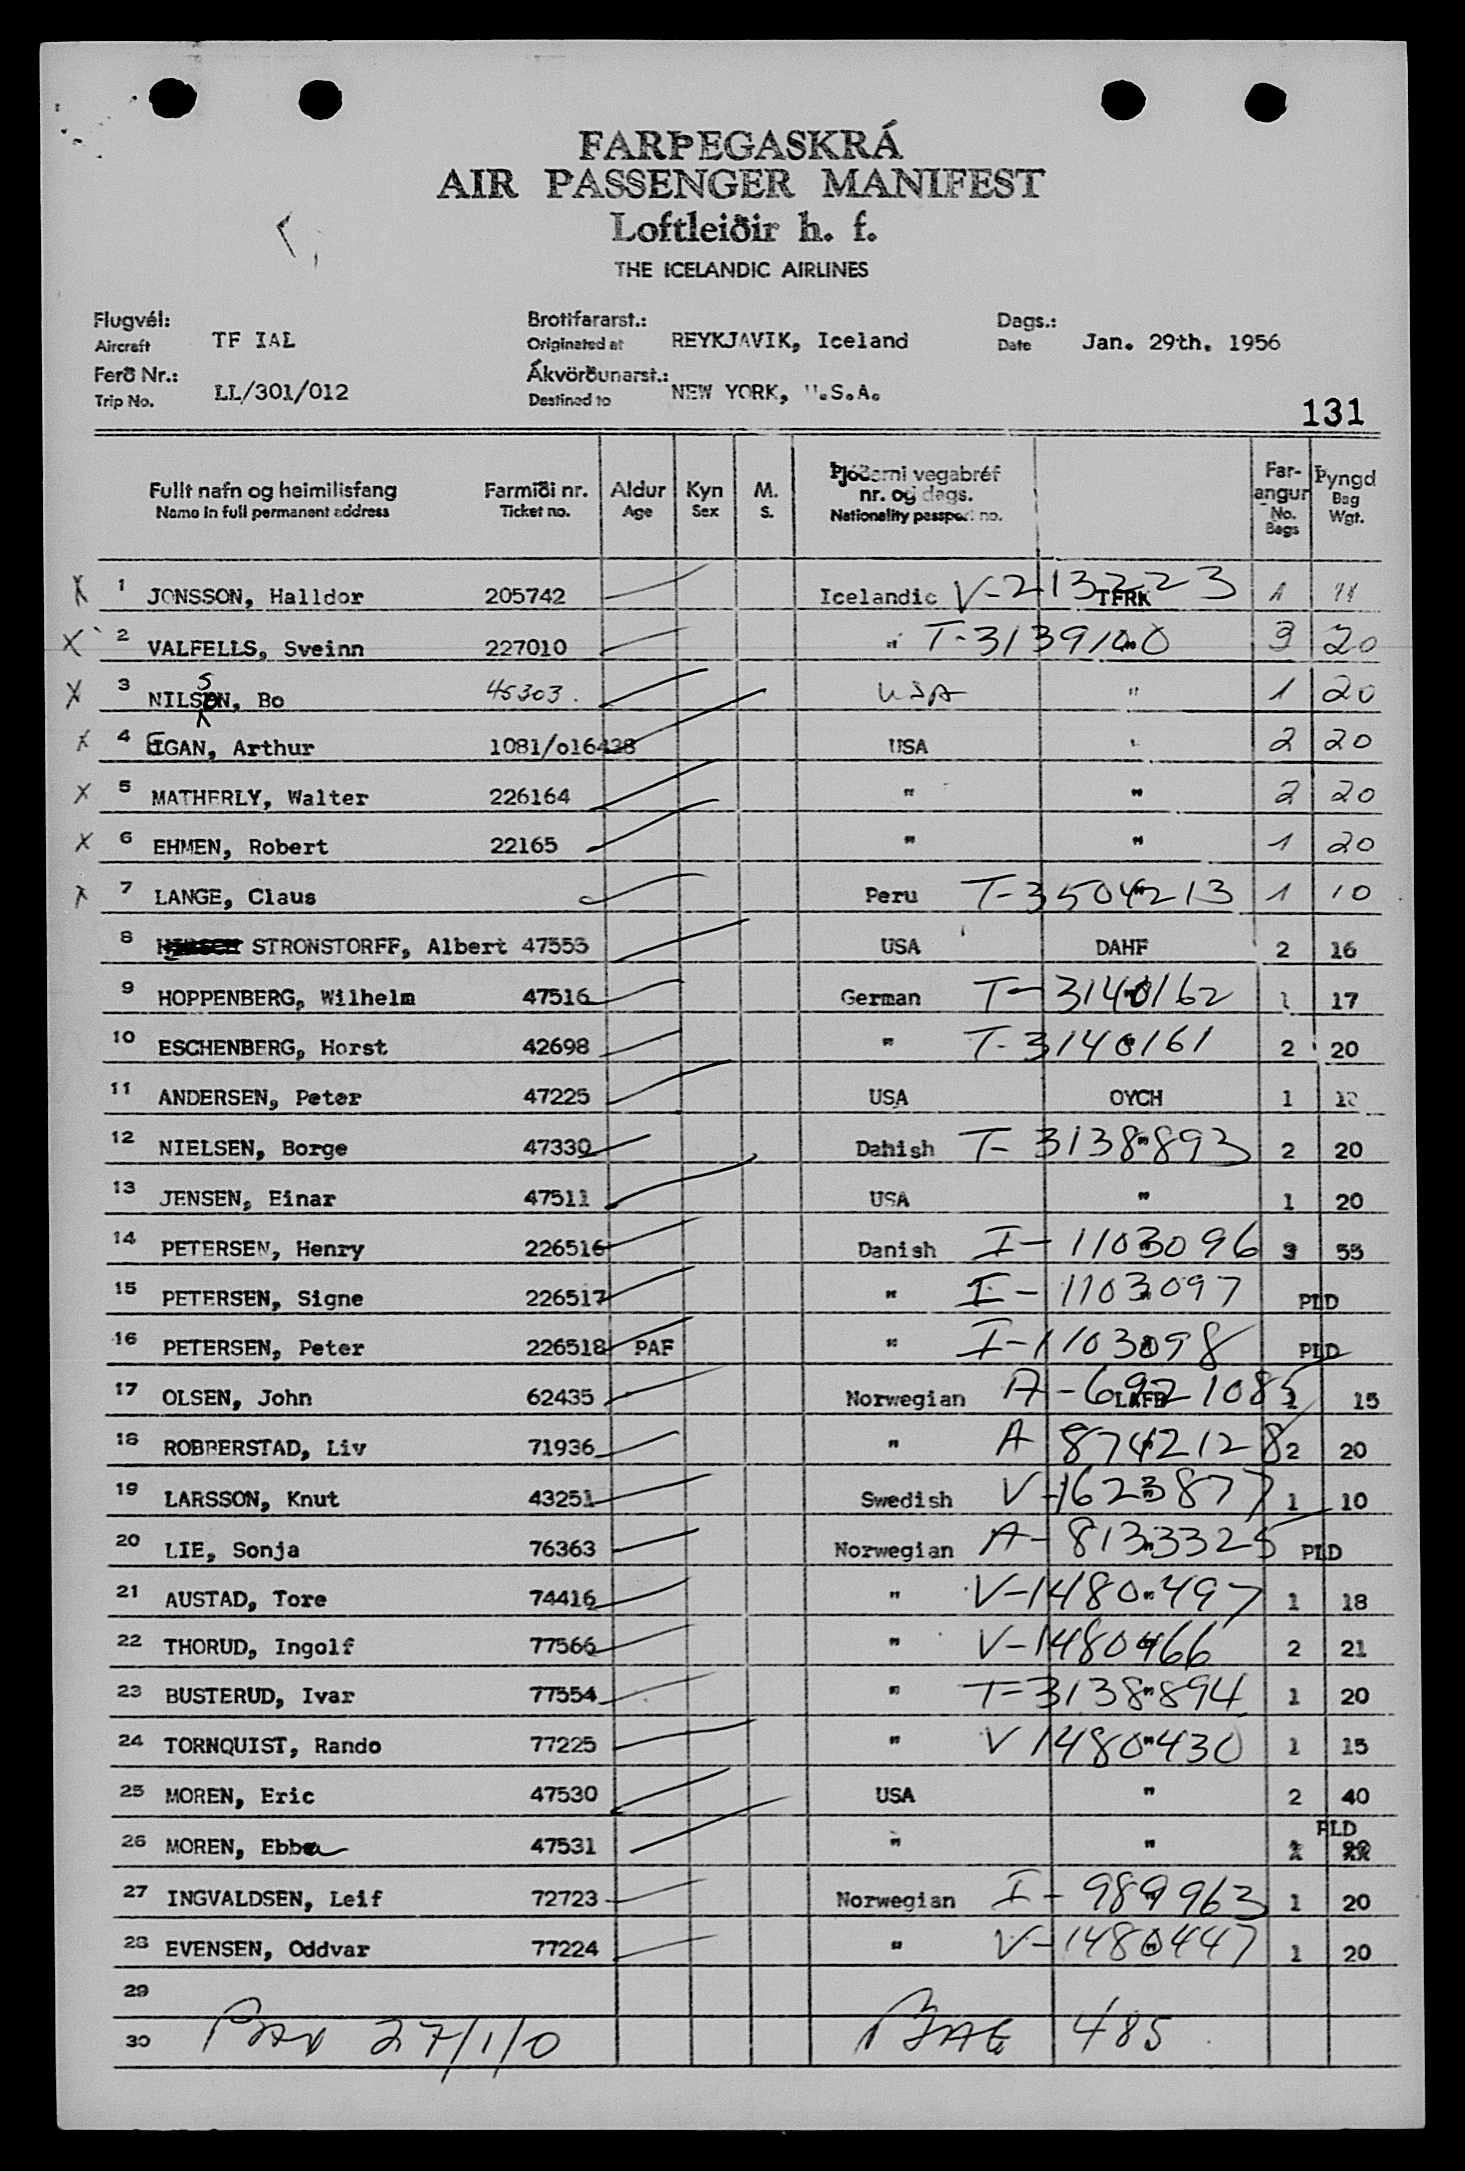 FARÞEGASKRÁ
AIR PASSENGER MANIFEST
Loftleiðir h. f.
THE ICELANDIC AIRLINES
Flugvél: Brottfararst.: Dags.:
Aircraft TF IAL Originated at REYKJAVIK, Iceland Date Jan. 29th. 1956
Ferð Nr.: Ákvörðunarst.:
Trip No. LL/301/012 Destined to NEW YORK, U.S.A.
131
Fullt nafn og heimilisfang Farmiði nr. Aldur Kyn M. Þjóðerni vegabréf nr. og dags. Far-angur Þyngd
Name in full permanent address Ticket no. Age Sex S. Nationality passport no. No. Bags Bag Wgt.
X 1 JONSSON, Halldor 205742 Icelandic V-213223 TFRK
X 2 VALFELLS, Sveinn 227010 " T-3139100 " 3 20
X 3 NILSSON, Bo 45303. USA " 1 20
X 4 EGAN, Arthur 1081/o16438 USA " 2 20
X 5 MATHERLY, Walter 226164 " " 2 20
X 6 EHMEN, Robert 22165 " " 1 20
X 7 LANGE, Claus Peru T-3504213 " 1 10
8 STRONSTORFF, Albert 47553 USA DAHF 2 16
9 HOPPENBERG, Wilhelm 47516 German T-3140162 " 1 17
10 ESCHENBERG, Horst 42698 " T-3140161 " 2 20
11 ANDERSEN, Peter 47225 USA OYCH 1
12 NIELSEN, Borge 47330 Danish T-3138893 " 2 20
13 JENSEN, Einar 47511 USA " 1 20
14 PETERSEN, Henry 226516 Danish I-1103096 " 3 55
15 PETERSEN, Signe 226517 " I-1103097 " PLD
16 PETERSEN, Peter 226518 PAF " I-1103098 " PLD
17 OLSEN, John 62435 Norwegian A-6921085 LAFB 1 15
18 ROBBERSTAD, Liv 71936 " A 8742128 " 2 20
19 LARSSON, Knut 43251 Swedish V-1623877 " 1 10
20 LIE, Sonja 76363 Norwegian A-8133325 " PLD
21 AUSTAD, Tore 74416 " V-1480497 " 1 18
22 THORUD, Ingolf 77566 " V-1480466 " 2 21
23 BUSTERUD, Ivar 77554 " T-3138894 " 1 20
24 TORNQUIST, Rando 77225 " V 1480430 " 1 15
25 MOREN, Eric 47530 USA " 2 40
26 MOREN, Ebba 47531 " " PLD
27 INGVALDSEN, Leif 72723 Norwegian I-989963 " 1 20
28 EVENSEN, Oddvar 77224 " V-1480447 " 1 20
29
30 PAX 27/1/0 BAG 485